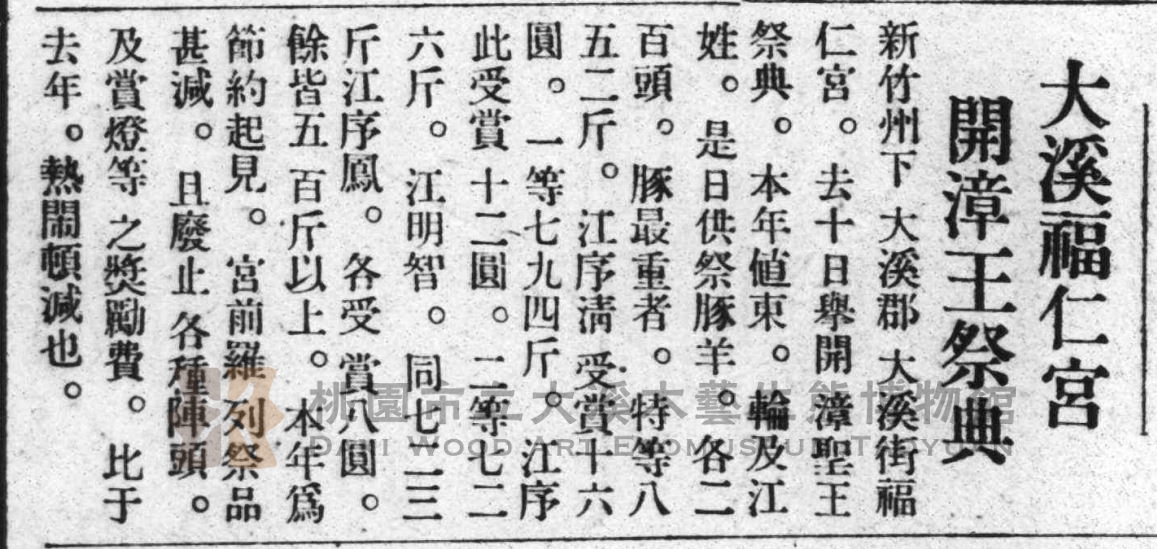 大溪福仁宮
開漳王祭典
新竹州下大溪郡大溪街福
仁宮。去十日舉開漳聖王
祭典。本年値東。輪及江
姓。是日供祭豚羊。各二
百頭。豚最重者。特等八
五二斤。江序淸受賞十六
圓。一等七九四斤。江序
此受賞十二圓。二等七二
六斤。江明智。同七二三
斤江序鳳。各受賞八圓。
餘皆五百斤以上。本年爲
節約起見。宮前羅列祭品
甚減。且廢止各種陣頭。
及賞燈等之奬勵費。比于
去年。熱鬧頓減也。
桃園市立大溪木藝生態博物館
DAXI WOOD ART ECOMUSEUM TAOYUAN